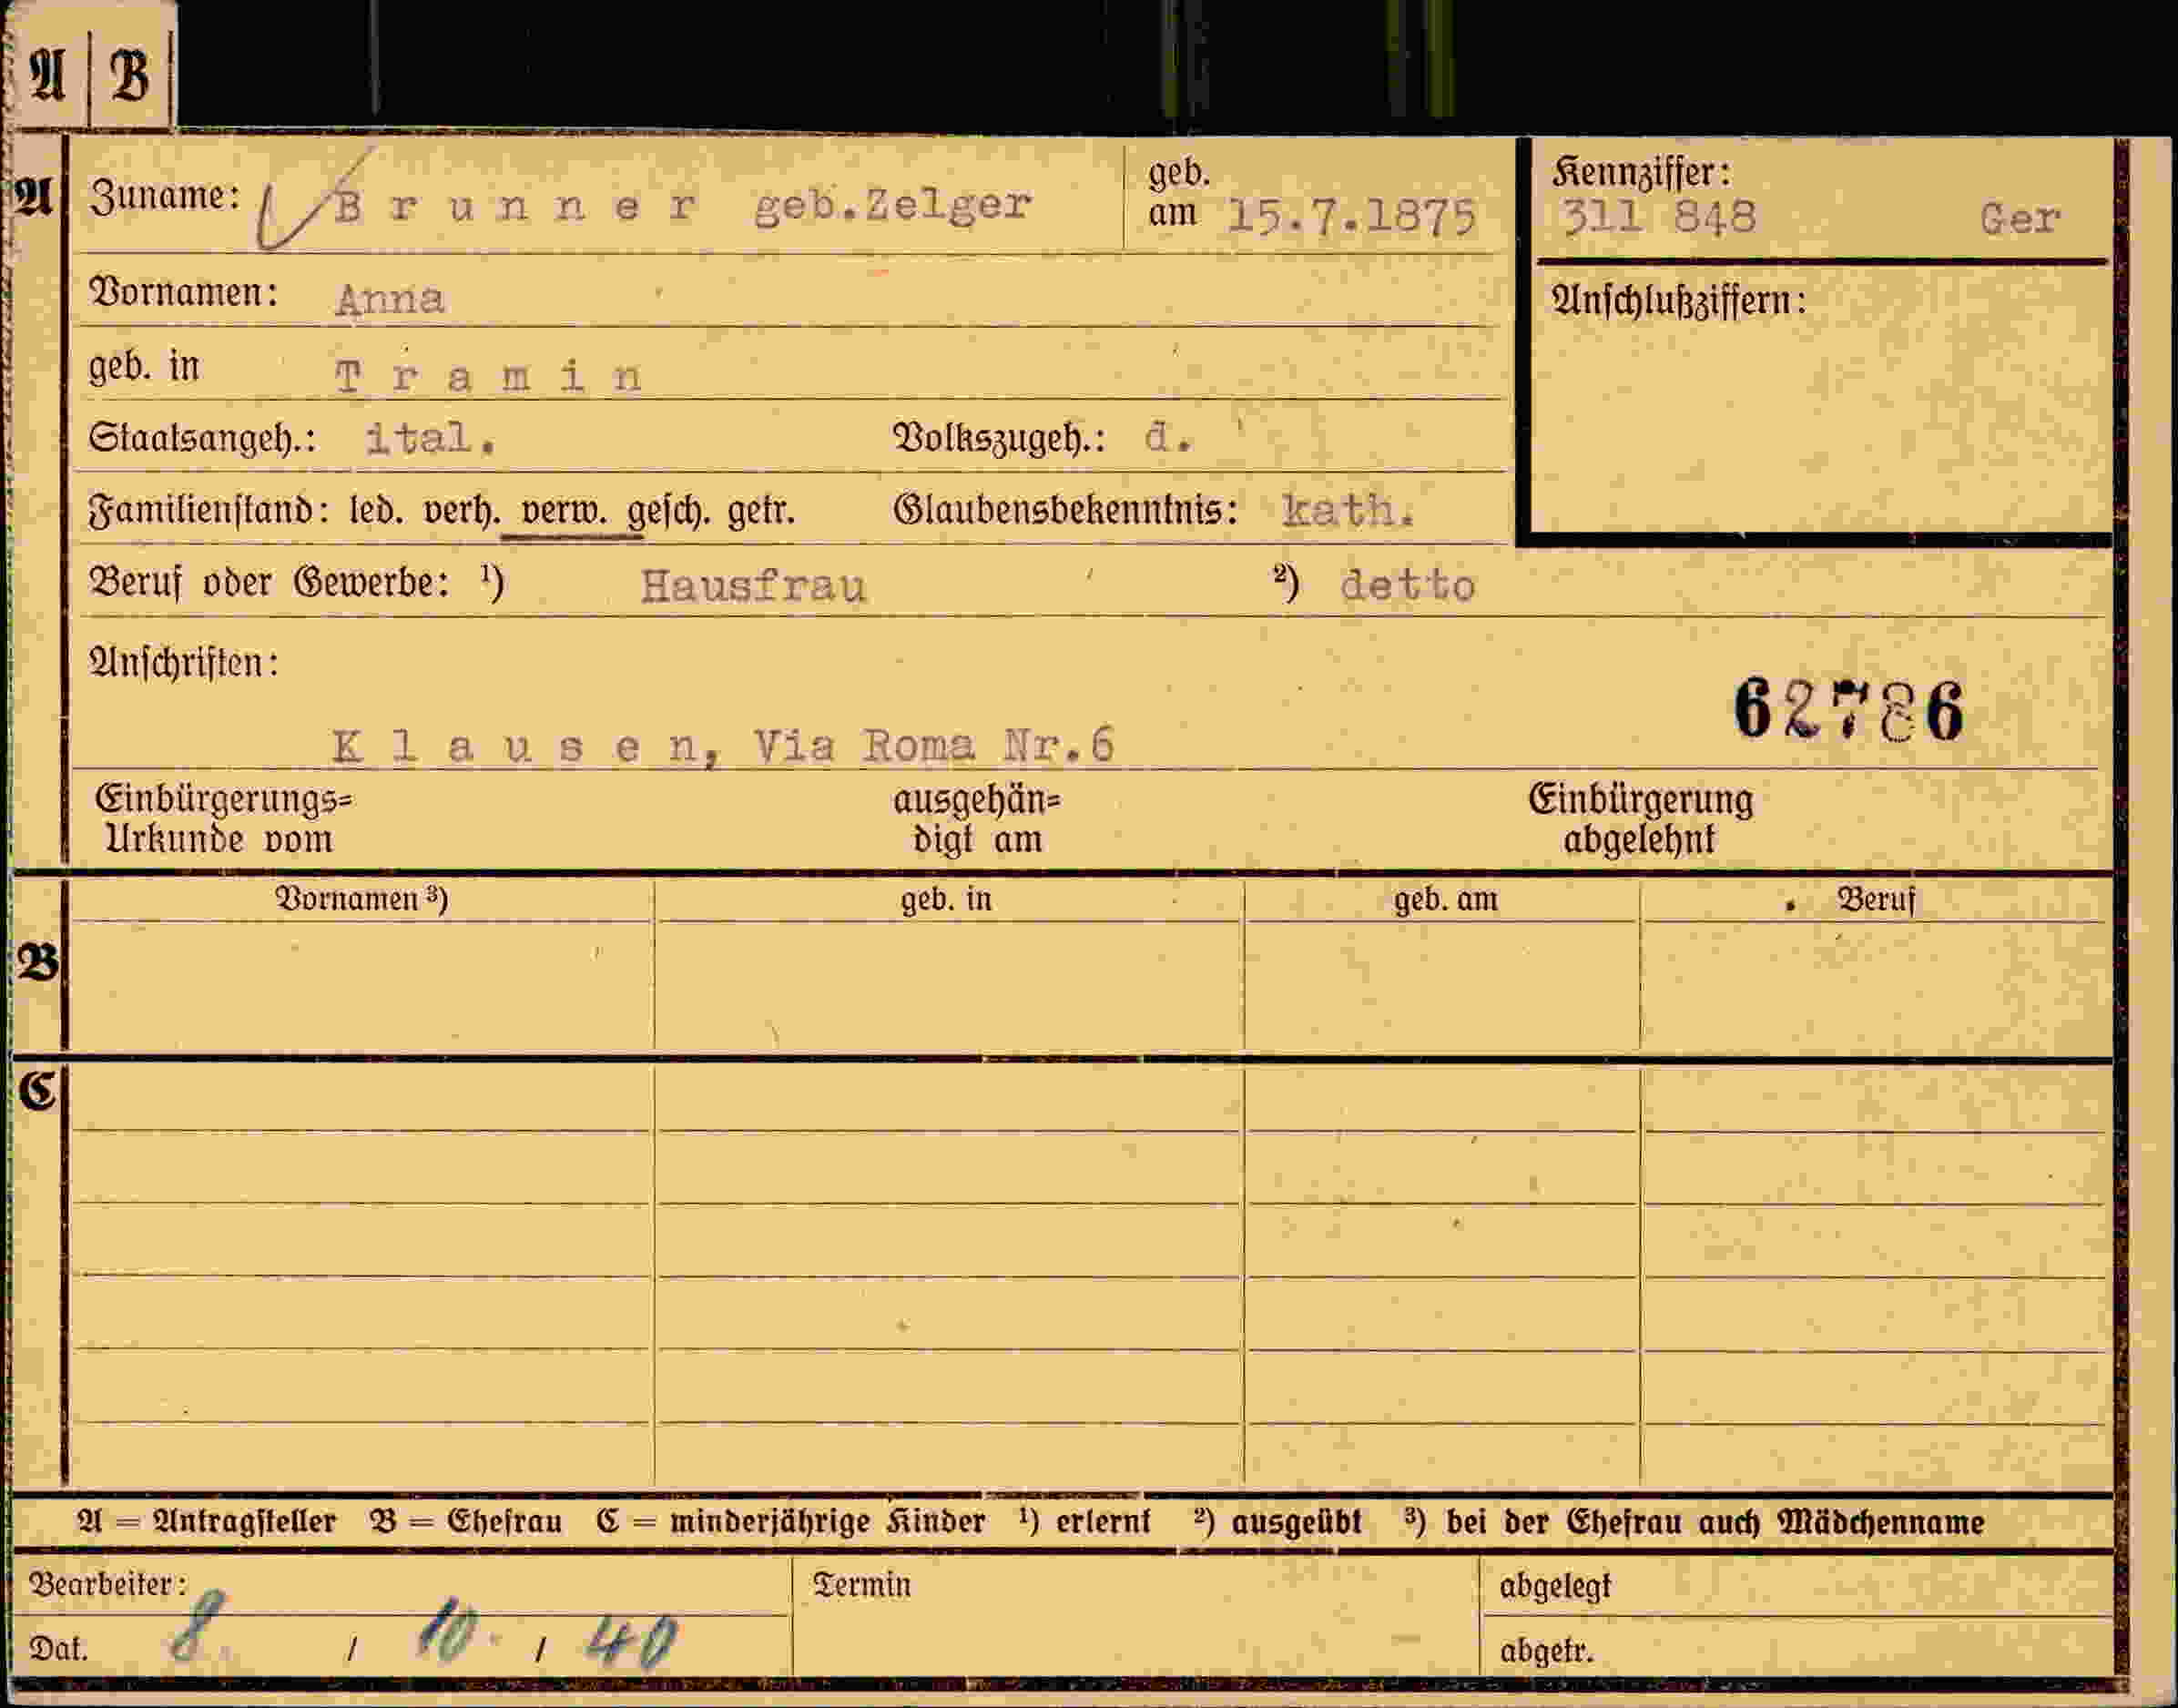 A B
A Zuname: Brunner geb.Zelger geb. am 15.7.1875 Kennziffer: 311 848 Ger
Vornamen: Anna Anschlußziffern:
geb. in Tramin
Staatsangeh.: ital. Volkszugeh.: d.
Familienstand: led. verh. verw. gesch. getr. Glaubensbekenntnis: kath.
Beruf oder Gewerbe: ¹) Hausfrau ²) detto
Anschriften:
62786
Klausen, Via Roma Nr.6
Einbürgerungs= ausgehän= Einbürgerung
Urkunde vom digt am abgelehnt
Vornamen ³) geb. in geb. am Beruf
B
C
A = Antragsteller B = Ehefrau C = minderjährige Kinder ¹) erlernt ²) ausgeübt ³) bei der Ehefrau auch Mädchenname
Bearbeiter: Termin abgelegt
Dat. 8. / 10. / 40 abgetr.